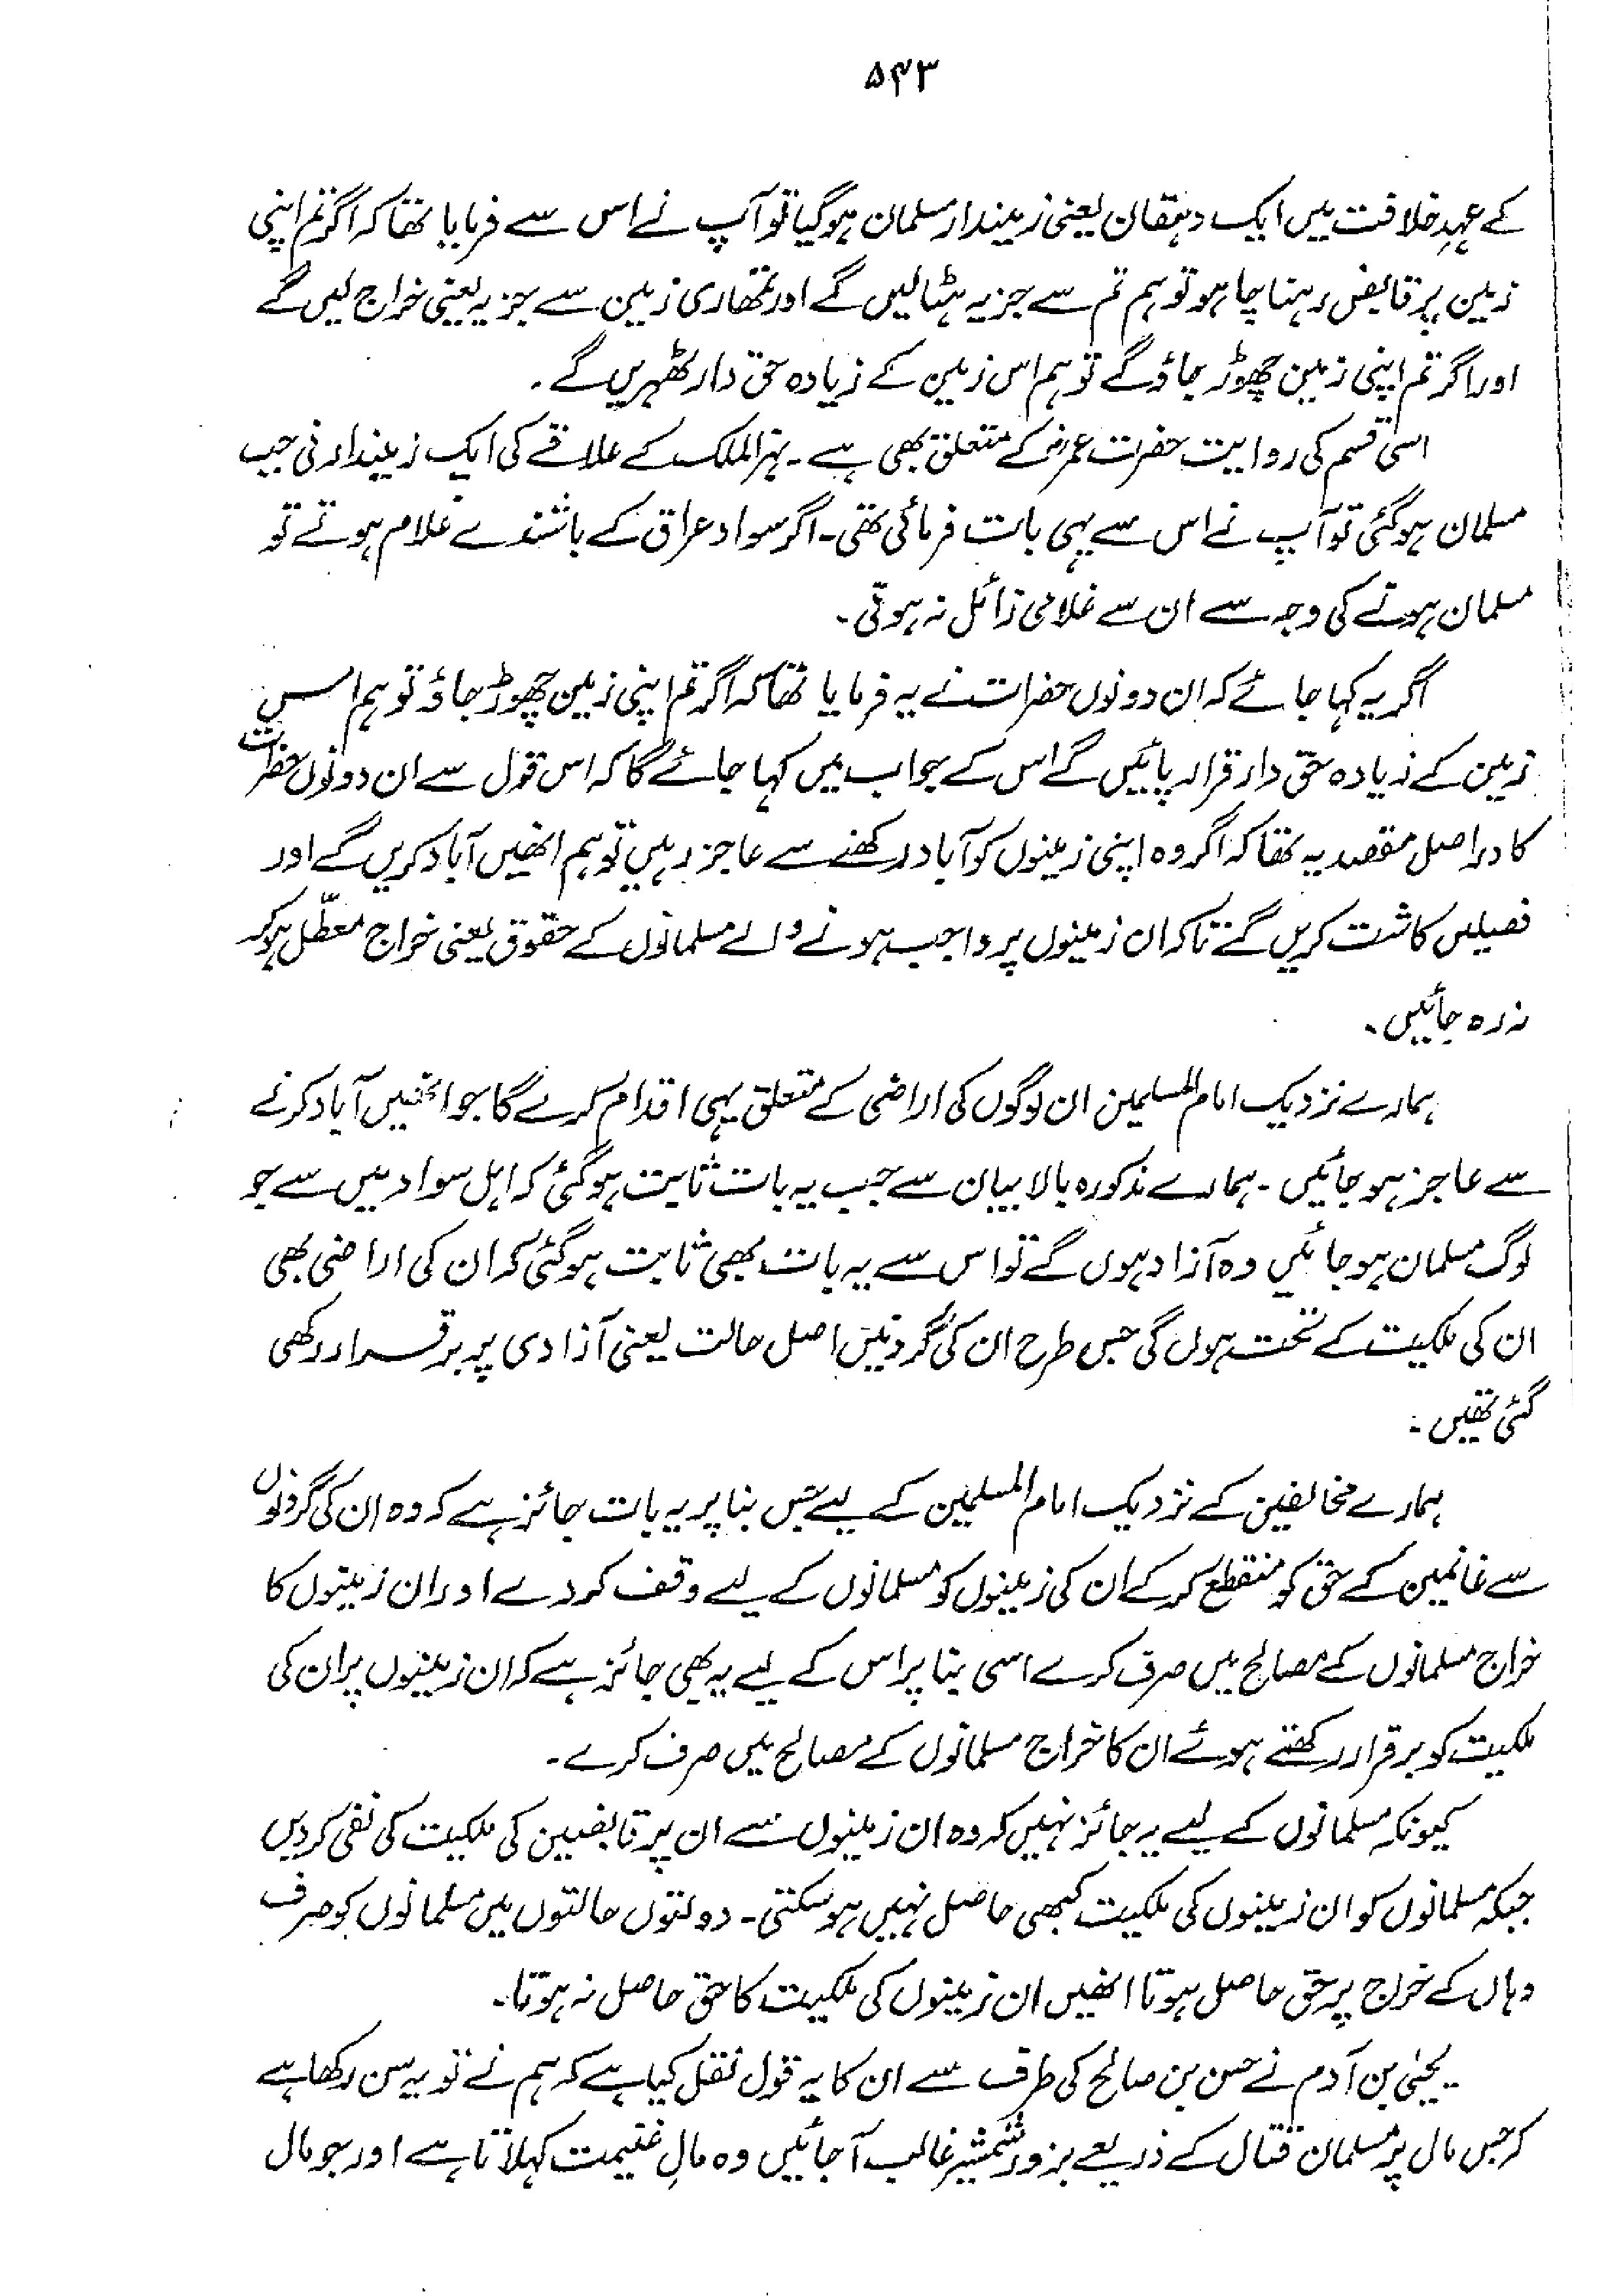 ۵۴۳
کے عہدِ خلافت میں ایک دہقان یعنی زمیندار مسلمان ہوگیا تو آپ نے اس سے فرمایا تھا کہ اگر تم اپنی
زمین پر قابض رہنا چاہو تو ہم تم سے جزیہ ہٹالیں گے اور تمھاری زمین سے جزیہ یعنی خراج لیں گے
اور اگر تم اپنی زمین چھوڑ جاؤ گے تو ہم اس زمین کے زیادہ حق دار ٹھہریں گے۔
اسی قسم کی روایت حضرت عمرؓ کے متعلق بھی ہے۔ نہر الملک کے علاقے کی ایک زمیندارنی جب
مسلمان ہوگئی تو آپ نے اس سے یہی بات فرمائی تھی۔ اگر سواد عراق کے باشندے غلام ہوتے تو
مسلمان ہونے کی وجہ سے ان سے غلامی زائل نہ ہوتی۔
اگر یہ کہا جائے کہ ان دونوں حضرات نے یہ فرمایا تھا کہ اگر تم اپنی زمین چھوڑ جاؤ تو ہم اس
زمین کے زیادہ حق دار قرار پائیں گے اس کے جواب میں کہا جائے گا کہ اس قول سے ان دونوں حضرات
کا دراصل مقصد یہ تھا کہ اگر وہ اپنی زمینوں کو آباد رکھنے سے عاجز رہیں تو ہم انھیں آباد کریں گے اور
فصیلیں کاشت کریں گے تاکہ ان زمینوں پر واجب ہونے والے مسلمانوں کے حقوق یعنی خراج معطّل ہوکر
نہ رہ جائیں۔
ہمارے نزدیک امام المسلمین ان لوگوں کی اراضی کے متعلق یہی اقدام کرے گا جو انھیں آباد کرنے
سے عاجز ہوجائیں۔ ہمارے مذکورہ بالا بیان سے جب یہ بات ثابت ہوگئی کہ اہل سواد میں سے جو
لوگ مسلمان ہوجائیں وہ آزاد ہوں گے تو اس سے یہ بات بھی ثابت ہوگئی کہ ان کی اراضی بھی
ان کی ملکیت کے تحت ہوں گی جس طرح ان کی گردنیں اصل حالت یعنی آزادی پر برقرار رکھی
گئی تھیں۔
ہمارے مخالفین کے نزدیک امام المسلمین کے لیے جس بنا پر یہ بات جائز ہے کہ وہ ان کی گردنوں
سے غانمین کے حق کو منقطع کرکے ان کی زمینوں کو مسلمانوں کے لیے وقف کردے اور ان زمینوں کا
خراج مسلمانوں کے مصالح میں صرف کرے اسی بنا پر اس کے لیے یہ بھی جائز ہے کہ ان زمینوں پر ان کی
ملکیت کو برقرار رکھتے ہوئے ان کا خراج مسلمانوں کے مصالح میں صرف کرے۔
کیونکہ مسلمانوں کے لیے یہ جائز نہیں کہ وہ ان زمینوں سے ان پر قابضین کی ملکیت کی نفی کردیں
جبکہ مسلمانوں کو ان زمینوں کی ملکیت کبھی حاصل نہیں ہوسکتی۔ دونوں حالتوں میں مسلمانوں کو صرف
وہاں کے خراج پر حق حاصل ہوتا انھیں ان زمینوں کی ملکیت کا حق حاصل نہ ہوتا۔
یحییٰ بن آدم نے حسن بن صالح کی طرف سے ان کا یہ قول نقل کیا ہے کہ ہم نے تو یہ سن رکھا ہے
کہ جس مال پر مسلمان قتال کے ذریعے بزور شمشیر غالب آجائیں وہ مالِ غنیمت کہلاتا ہے اور جو مال